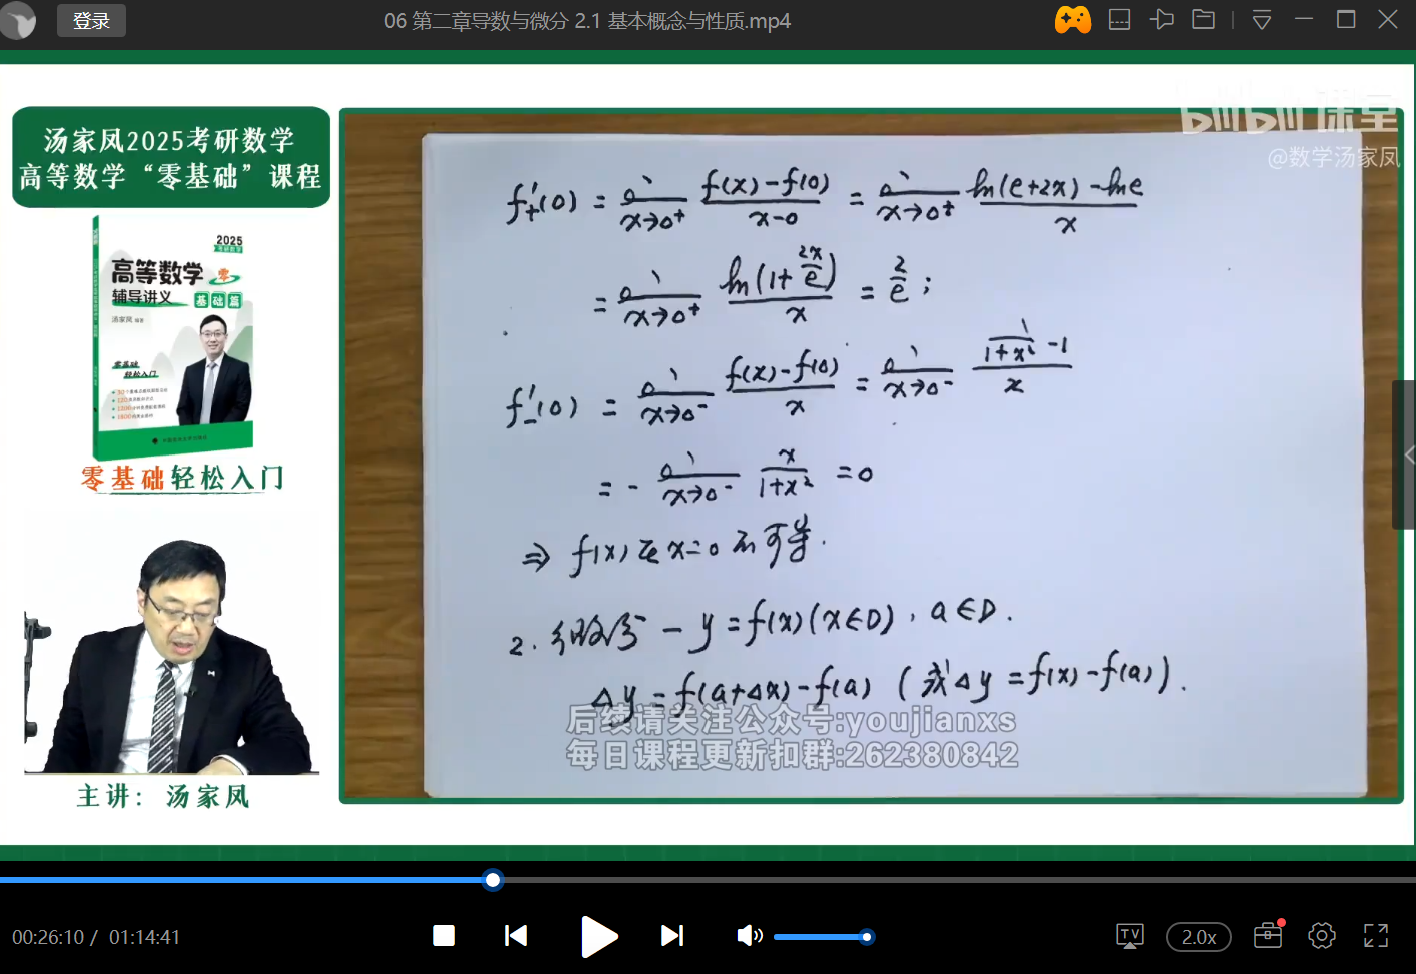 登录
06 第二章导数与微分 2.1 基本概念与性质.mp4
bilibili课堂
@数学汤家凤
汤家凤2025考研数学
高等数学“零基础”课程
2025
高等数学 零
辅导讲义 基础篇
汤家凤 编著
零基础
轻松入门
零基础轻松入门
主讲：汤家凤
f₊′(0) = lim x→0⁺ (f(x)-f(0))/(x-0) = lim x→0⁺ (ln(e+2x)-lne)/x
= lim x→0⁺ ln(1+2x/e)/x = 2/e ;
f₋′(0) = lim x→0⁻ (f(x)-f(0))/x = lim x→0⁻ (1/(1+x²) -1)/x
= - lim x→0⁻ x/(1+x²) = 0
⇒ f(x)在x=0不可导.
2. 微分 — y=f(x)(x∈D), a∈D.
Δy=f(a+Δx)-f(a) (或Δy=f(x)-f(a)).
后续请关注公众号:youjianxs
每日课程更新扣群:262380842
00:26:10 / 01:14:41
TV
2.0x